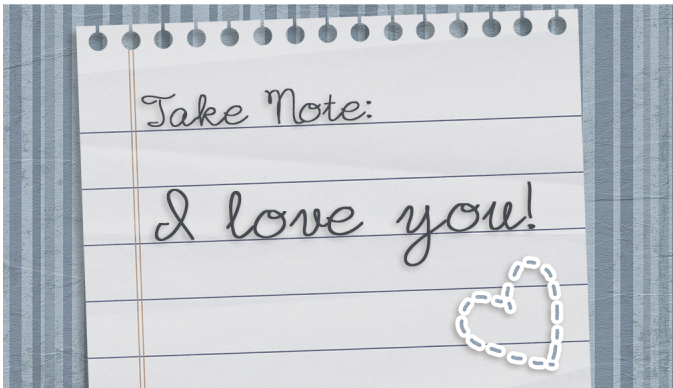 Take Note:
I love you!